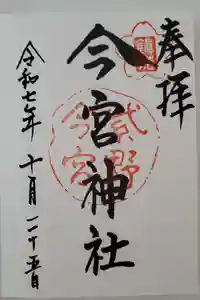 奉拝
今宮神社
今宮
令和七年 十月二十五日